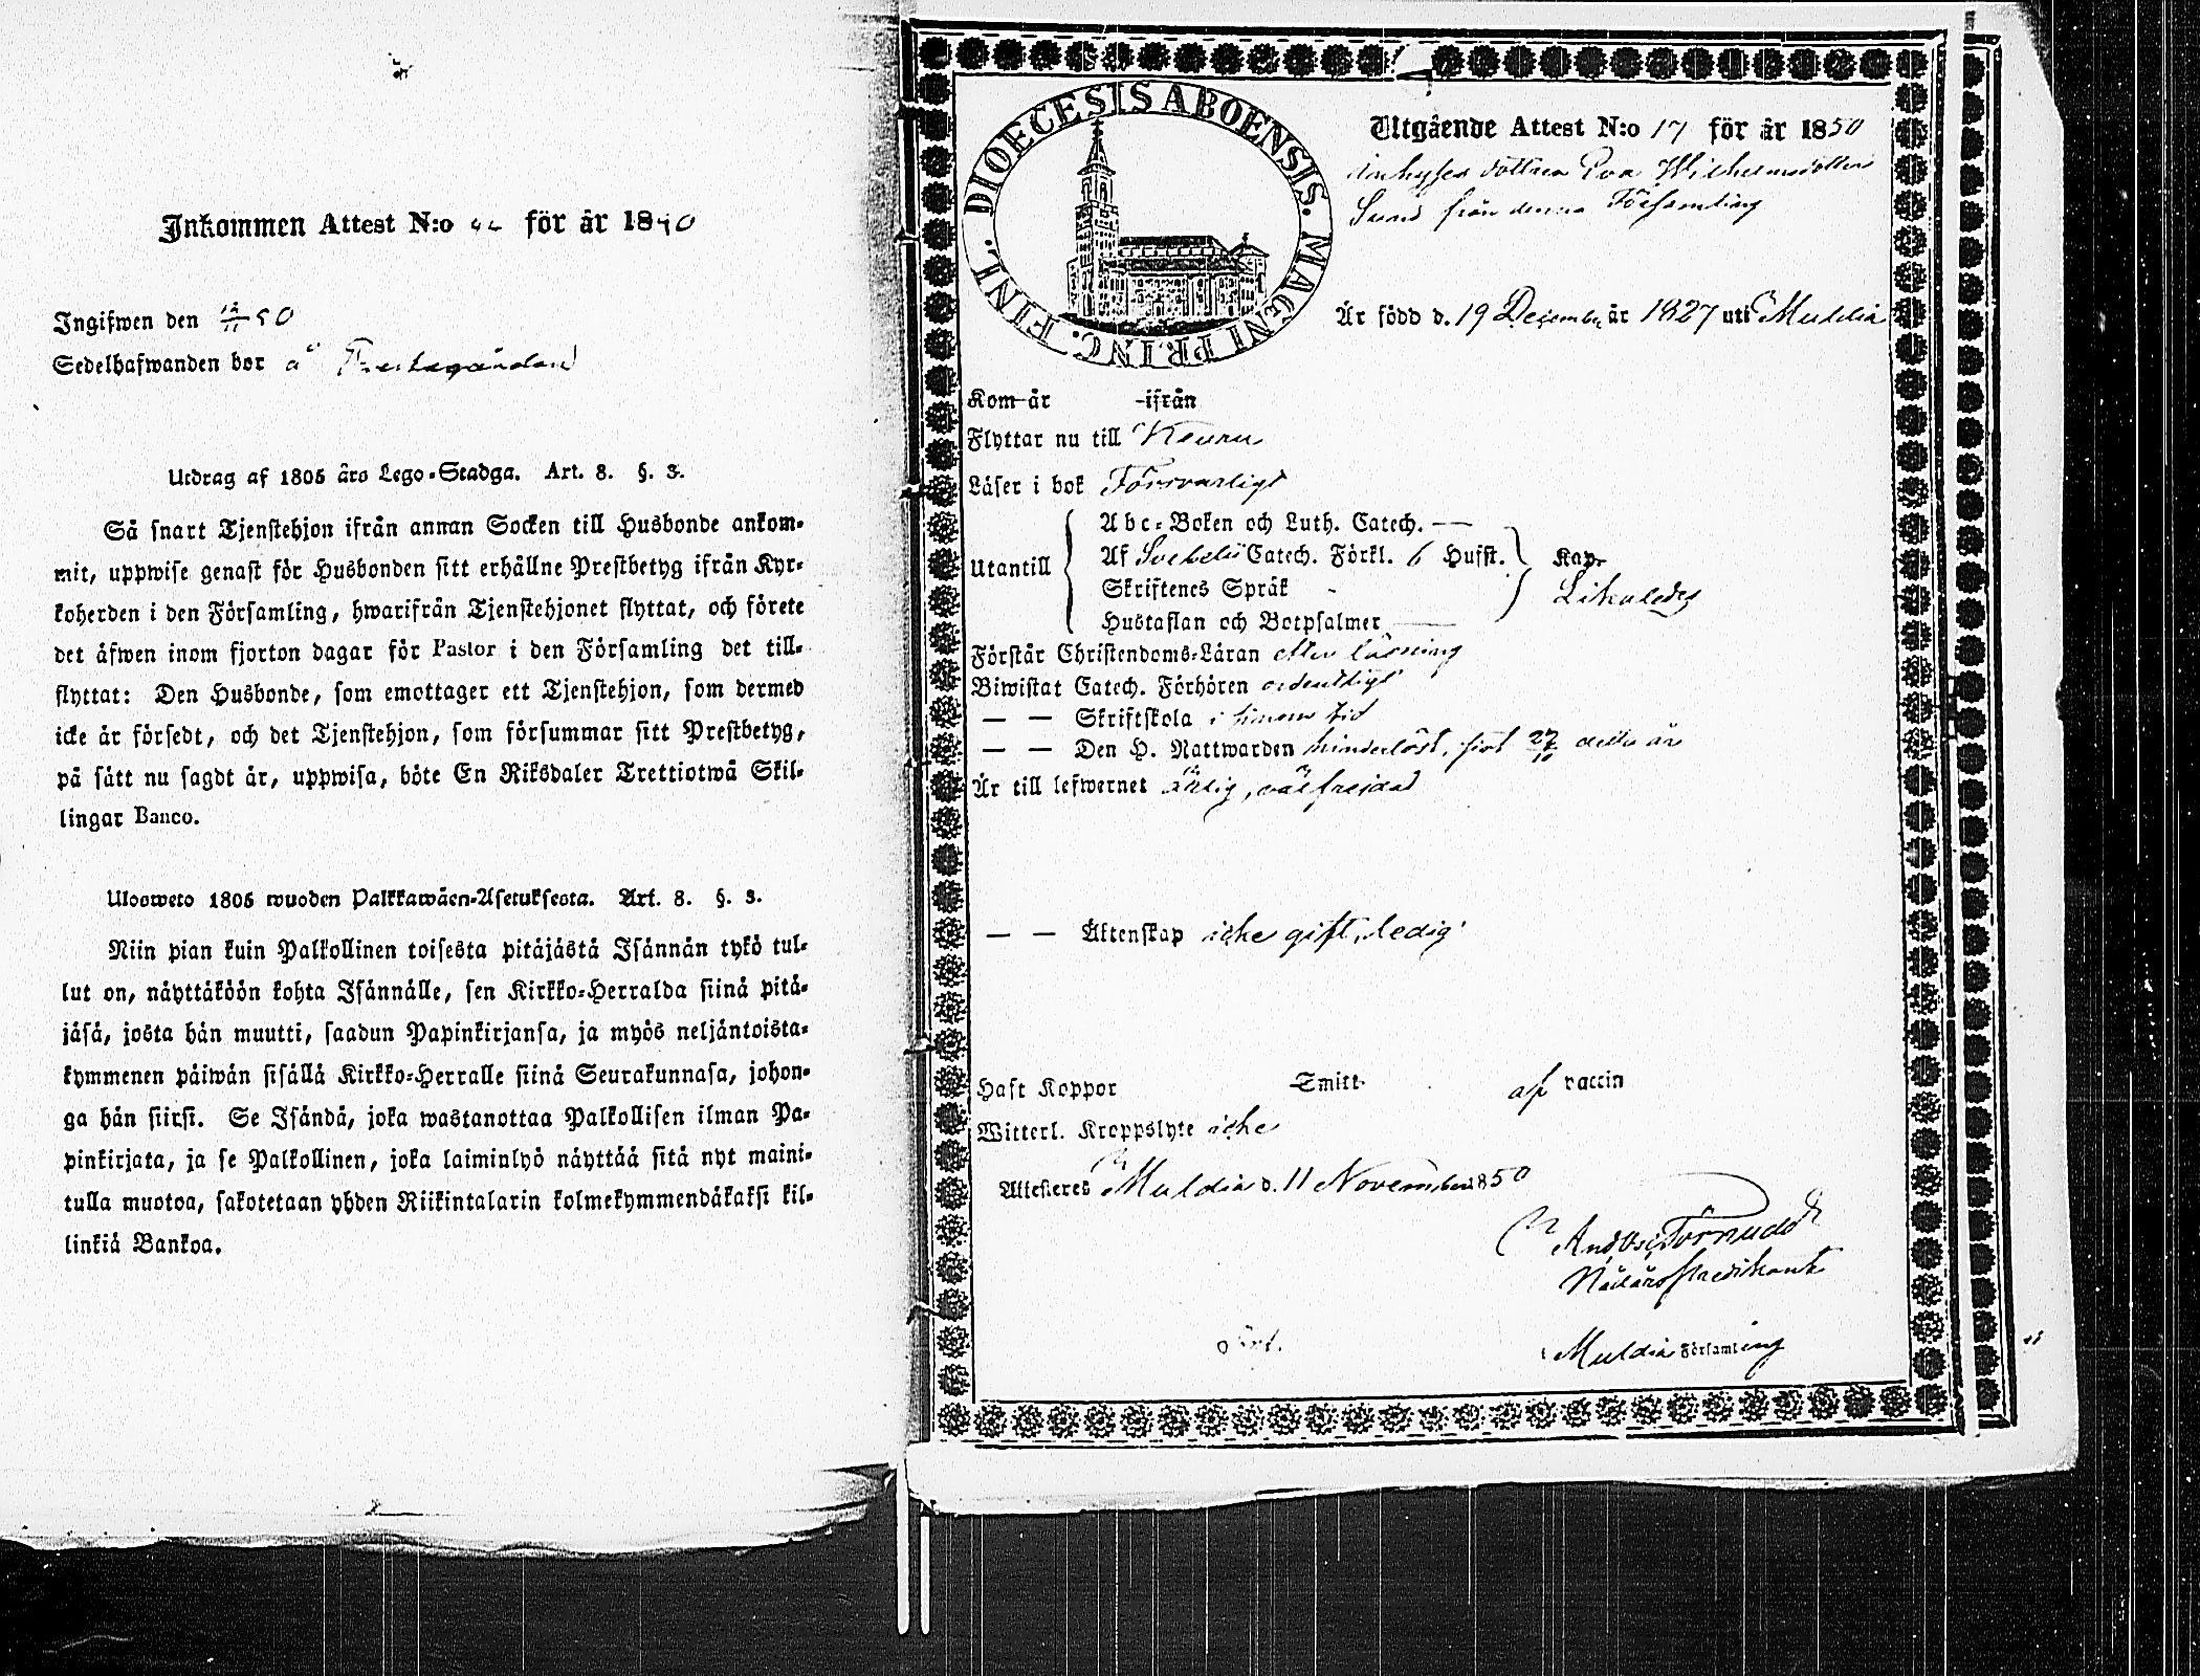 Inkommen Attest N:o för år 18
Ingifwen den 12/11 50
Sedelhafwanden bor å Prestegården
Utdrag af 1805 års Lego-Stadga. Art. 8. §. 3.
Så snart Tjenstehjon ifrån annan Socken till Husbonde ankom-
mit, uppwise genast för Husbonden sitt erhållne Prestbetyg ifrån Kyr-
koherden i den Församling, hwarifrån Tjenstehjonet flyttat, och förete
det äfwen inom fjorton dagar för Pastor i den Församling det till-
flyttat: Den Husbonde, som emottager ett Tjenstehjon, som dermed
icke är försedt, och det Tjenstehjon, som försummar sitt Prestbetyg,
på sätt nu sagdt är, uppwisa, böte En Riksdaler Trettiotwå Skil-
lingar Banco.
Ulosweto 1805 wuoden Palkkawäen-Asetuksesta. Art. 8. §. 3.
Niin pian kuin Palkollinen toisesta pitäjästä Isännän tykö tul-
lut on, näyttäköön kohta Isännälle, sen Kirkko-Herralda siinä pitä-
jäsä, josta hän muutti, saadun Papinkirjansa, ja myös neljäntoista-
kymmenen päiwän sisällä Kirkko-Herralle siinä Seurakunnasa, johon-
ga hän siirsi. Se Isändä, joka wastanottaa Palkollisen ilman Pa-
pinkirjata, ja se Palkollinen, joka laiminlyö näyttää sitä nyt maini-
tulla muotoa, sakotetaan yhden Riikintalarin kolmekymmendäkaksi kil-
linkiä Bankoa.
DIOECESIS ABOENSIS. MAGNI PRINC. FINL.
Utgående Attest N:o 17 för år 1850
inhyses dottren Eva Wilhelmsdotter
Sund från denna Församling
Är född d. 19 December år 1827 uti Muldia
Kom år ifrån
Flyttar nu till Keuru
Läser i bok Försvarligt
Utantill
Abc-Boken och Luth. Catech. —
Af Svebelii Catech. Förkl. 6 Hufst.
Skriftenes Språk -
Hustaflan och Botpsalmer —
Kap.
Likaledes
Förstår Christendoms-Läran efter läsning
Biwistat Catech. Förhören ordentligt
— — Skriftskola i sinom tid
— — Den H. Nattwarden hinderlöst, sist 27/10 detta år
Är till lefwernet ärlig, välfrejdad
— — Äktenskap icke gift, ledig
Haft Koppor Smitt. af vaccin
Witterl. Kroppslyte icke
Attesteras Muldia d. 11 November 1850
And Törnudd
Muldia Församling